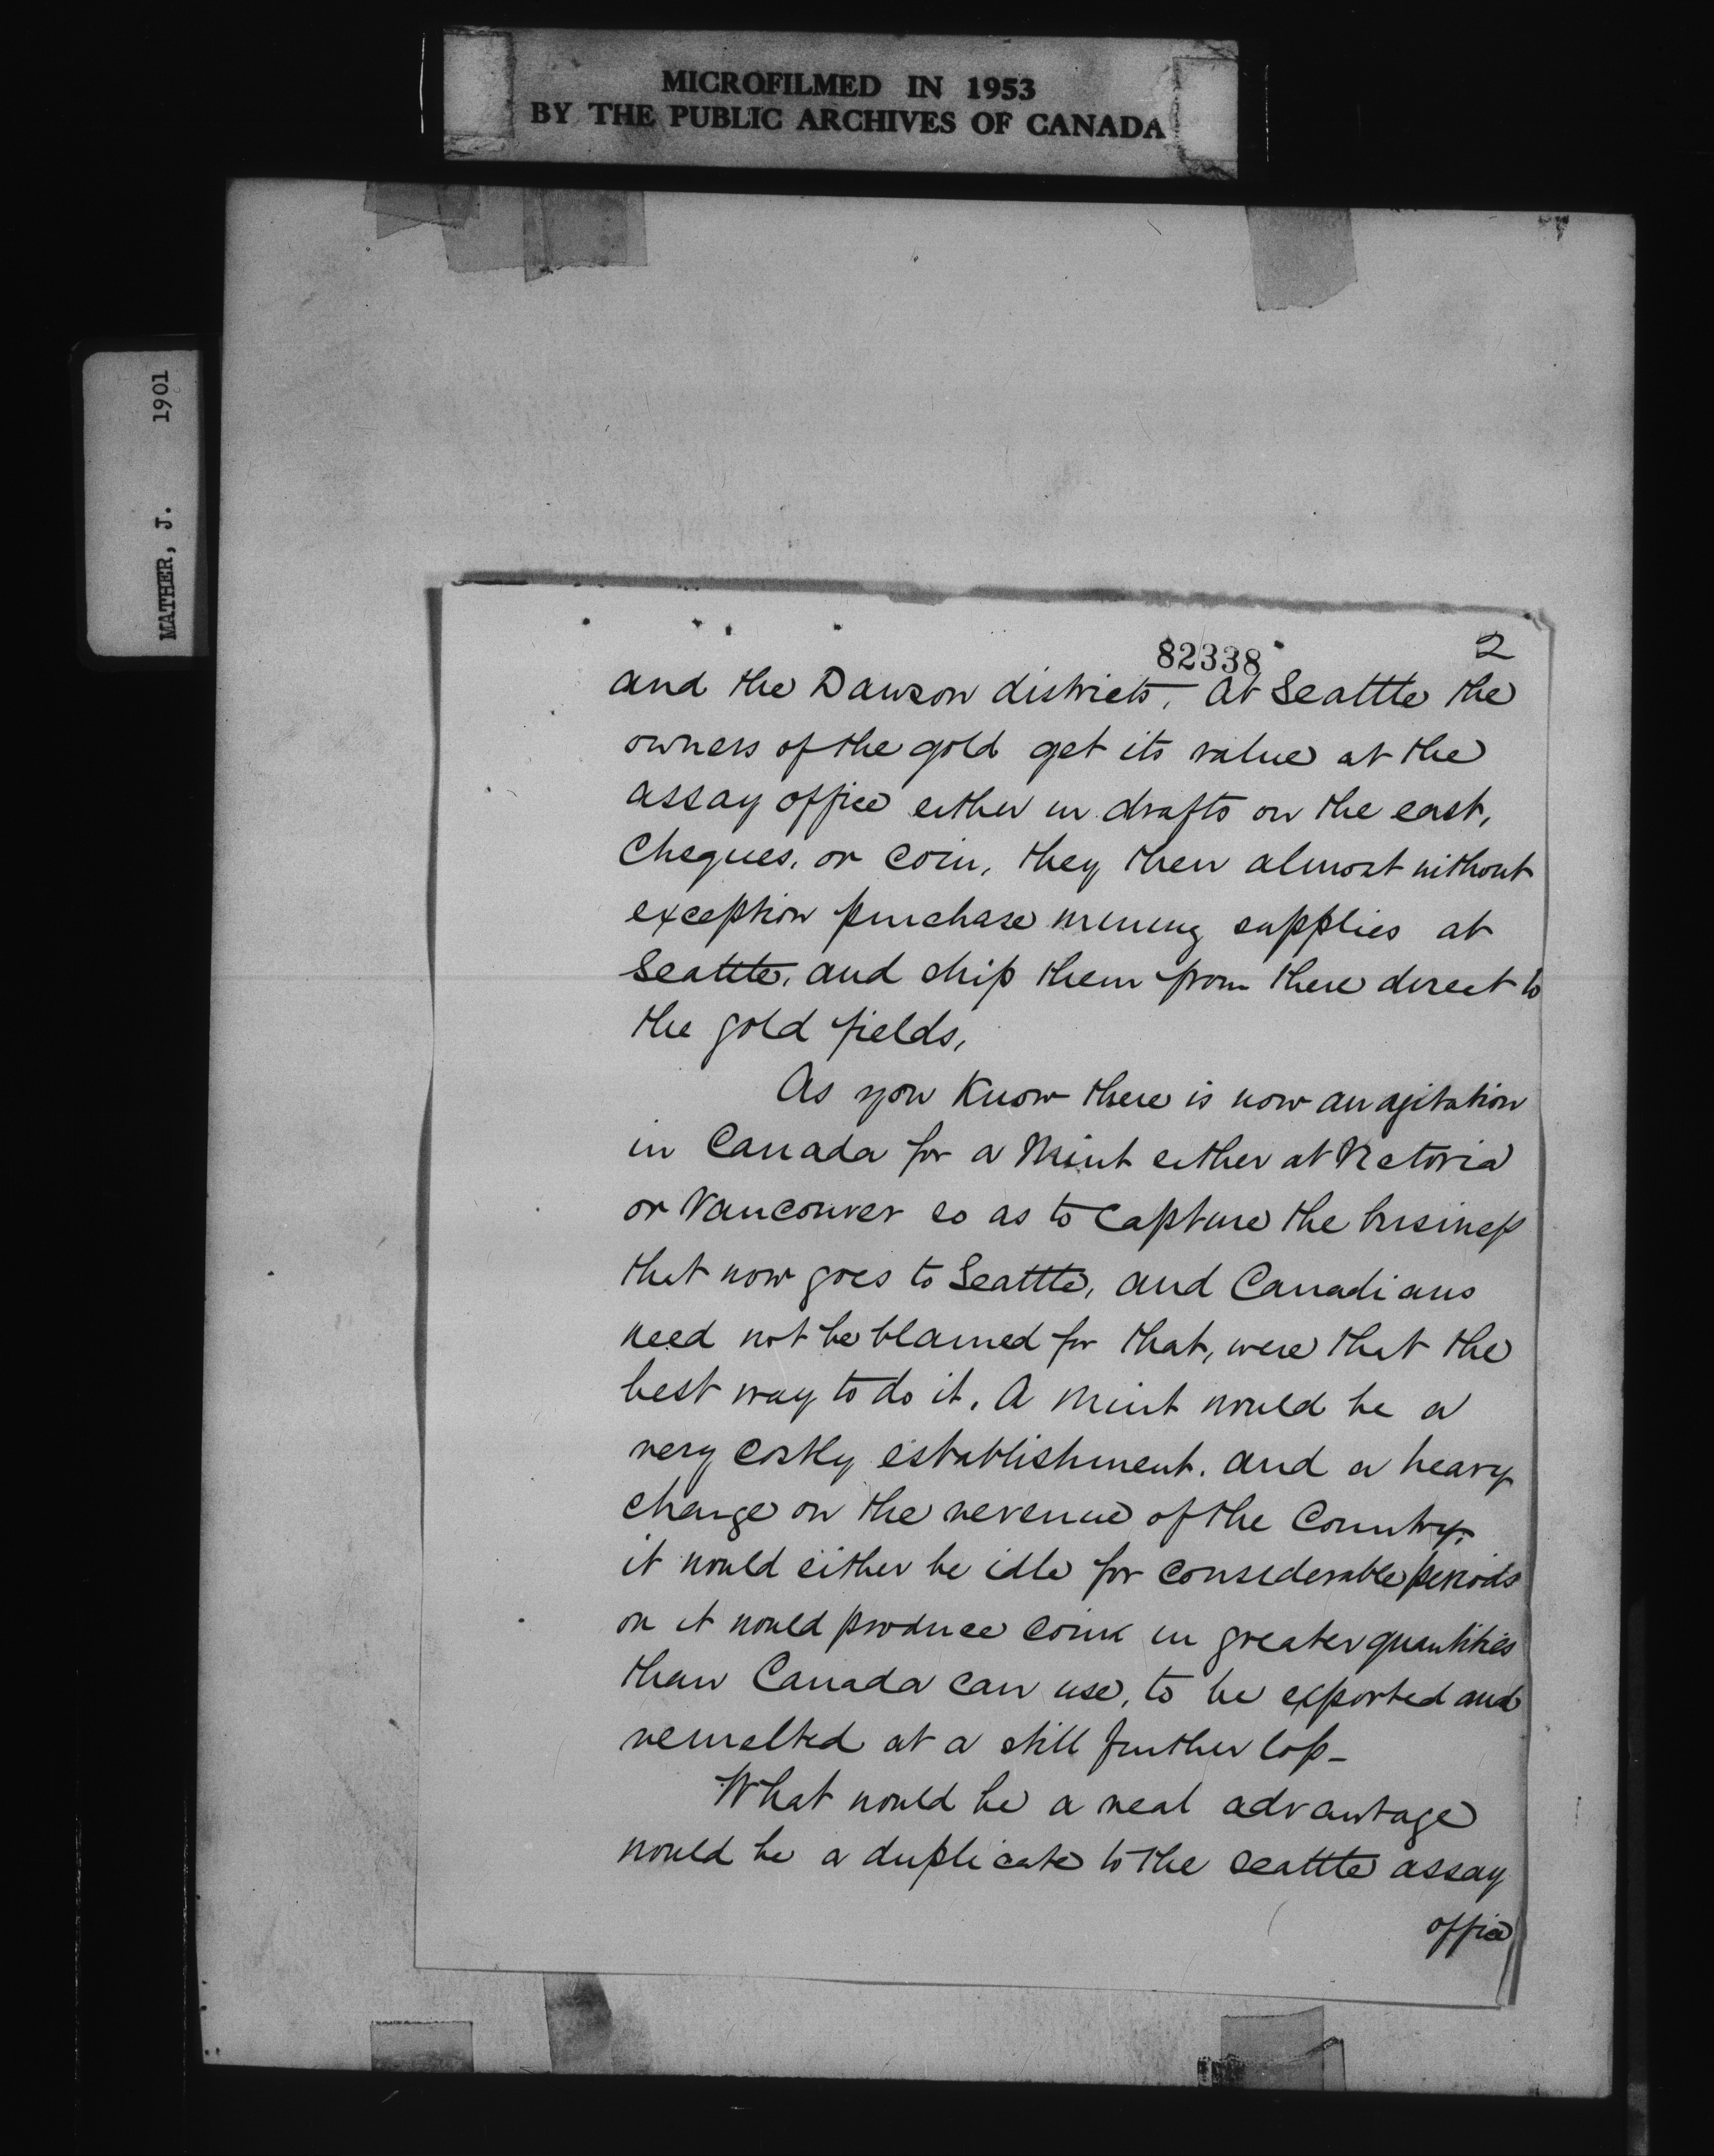 MICROFILMED IN 1953
BY THE PUBLIC ARCHIVES OF CANADA
MATHER, J. 1901
82338
2
and the Dawson districts. At Seattle the
owners of the gold get its value at the
assay office either in drafts on the east,
Cheques, or coin, they then almost without
exception purchase mining supplies at
Seattle, and ship them from there direct to
the gold fields,
As you Know there is now an agitation
in Canada for a Mint either at Victoria
or Vancouver so as to capture the business
that now goes to Seattle, and Canadians
need not be blamed for that, were that the
best way to do it. A Mint would be a
very costly establishment. and a heavy
charge on the revenue of the Country.
it would either be idle for considerable periods
or it would produce coins in greater quantities
than Canada can use, to be exported and
remelted at a still further loss –
What would be a real advantage
would be a duplicate to the Seattle assay
office